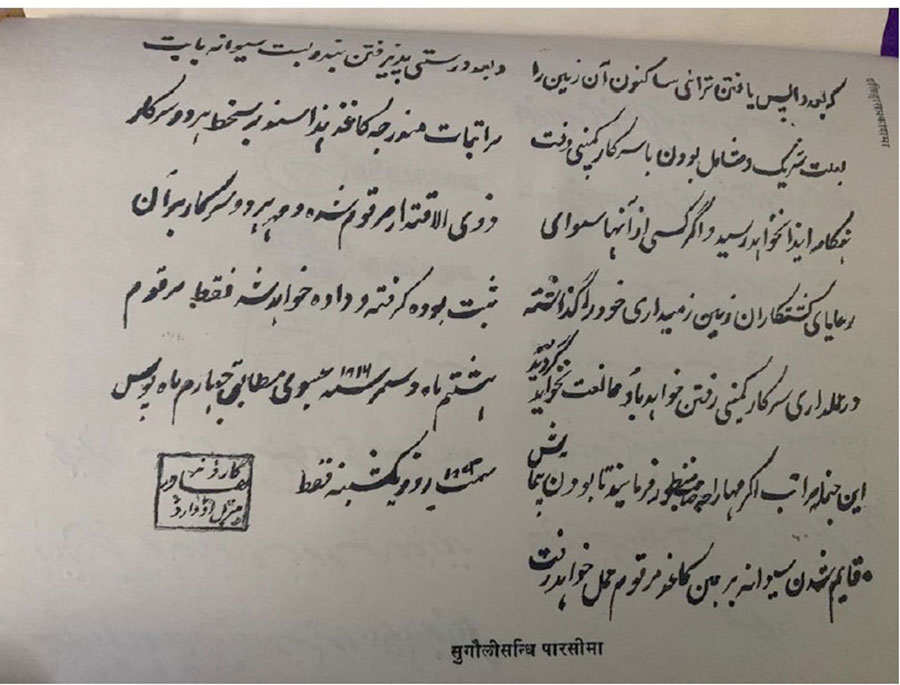 که بعد واپس یافتن ترائی ساکنون آن زمین را
بعلت شریک و شامل بودن با سرکار کمپنی وقت
هنگامه ایذا نخواهد رسید و اگر کسی از آنها سوای
رعایای کشتکاران زمین زمینداری خود را گذاشته
در عملداری سرکار کمپنی رفتن خواهد باو ممانعت نخواهد گردید
این جمله مراتب اگر مهاراجه صاحب منظور فرمایند تا بودن پیمایش
قایم شدن سیوانه بر همین کاغذ مرقوم عمل خواهد رفت
و بعد درستی پذیرفتن بندوبست سیوانه بابت
مراتبات مندرجه کاغذ هذا سند بدستخط هر دو سرکار
ذوی الاقتدار مرقوم شده و مهر هر دو سرکار بر آن
ثبت بوده گرفته و داده خواهد شد فقط مرقوم
هشتم ماه دسمبر سنه ۱۸۱۶ عیسوی مطابق چهارم ماه پوس
سمت ۱۸۷۳ روز یکشنبه فقط
सुगौलीसन्धि पारसीमा